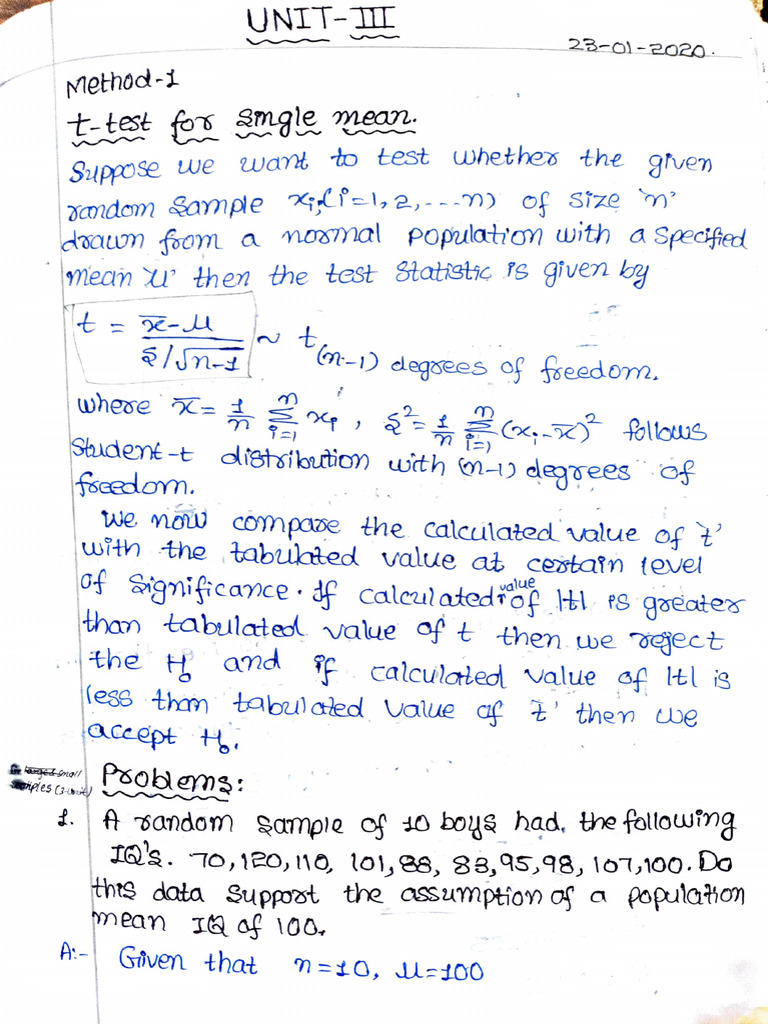 UNIT-III
23-01-2020.
Method-1
t-test for single mean.
Suppose we want to test whether the given
random sample xᵢ,(i=1,2,---n) of size 'n'
drawn from a normal population with a specified
mean 'μ' then the test statistic is given by
t = (x̄-μ)/(S/√n-1) ~ t(n-1) degrees of freedom.
where x̄ = 1/n Σⁿᵢ₌₁ xᵢ, S² = 1/n Σⁿᵢ₌₁ (xᵢ-x̄)² follows
Student-t distribution with (n-1) degrees of
freedom.
We now compare the calculated value of 't'
with the tabulated value at certain level
of significance. If calculated value of |t| is greater
than tabulated value of t then we reject
the H₀ and if calculated value of |t| is
less than tabulated value of 't' then we
accept H₀.
Problems:
1. A random sample of 10 boys had, the following
IQ's. 70,120,110, 101,88, 83,95,98,107,100. Do
this data support the assumption of a population
mean IQ of 100.
A:- Given that n=10, μ=100